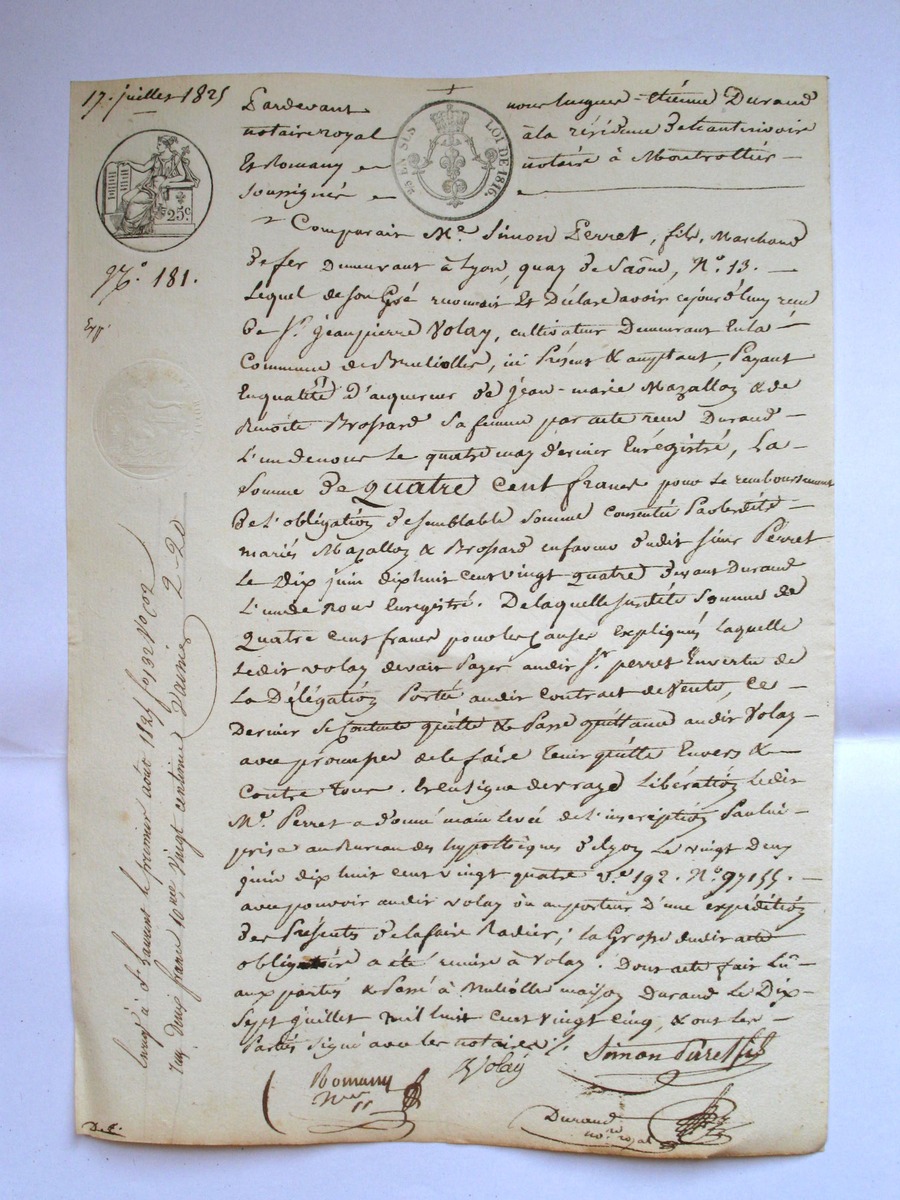 17. juillet 1825
Pardevant nous hugues-étienne Durand
notaire royal à la résidence de
Et Romany notaire à Montrottier
soussignés
25 c.
LOI DE 1816.
N.o 181.
Exp.
Comparait Mr. Simon Perret, fils, Marchand
de fer Demeurant à Lyon, quay de Saône, N.o 13.
Lequel de son Gré reconnait Et Déclare avoir cejourd'huy reçu
De Sr. jean pierre Volay, cultivateur Demeurant En la
Commune de, ici Présent & acceptant, Payant
En qualité D'acquereur de jean-marie Mazallon & de
Benoite Brossard Sa femme par acte reçu Durand
L'un de nous Le quatre may dernier Enrégistré, La
Somme De quatre cent francs pour Le remboursement
De L'obligation de semblable somme consentie Par lesdits
mariés Mazallon & Brossard en faveur dudit sieur Perret
Le Dix juin dix huit cent vingt quatre devant Durand
L'un de nous Enregistré. De laquelle susdite Somme de
quatre cent francs pour les causes Expliquées Laquelle
Ledit volay devait Payer audit Sr. perret En vertu de
La Délégation Portée audit contrat de vente, ce
Dernier Se Contente quitte & Passe quittance audit Volay
avec promesse de le faire Tenir quitte Envers &
Contre Tous. En signe de vraye Libération Ledit
Mr. Perret a donné main levée de l'inscription Par lui
prise au Bureau des hypothèques de Lyon Le vingt deux
juin dix huit cent vingt quatre v.e 192. N.o 97155.
avec pouvoir audit volay ou au porteur D'une expédition
des Présentes de la faire Radier; La Grosse dudit acte
obligatoire a été remise à Volay. Dont acte fait Lû
aux parties & Passé à maison Durand Le Dix
Sept juillet mil huit Cent vingt Cinq, & ont les
Parties signé avec les notaires
Simon Perret fils
Volay
Romany
Nre
Durand
no.re royal
Enregé à St. Laurent le premier août 1825 fo 132
reçu Deux francs 10me vingt centimes 2-20